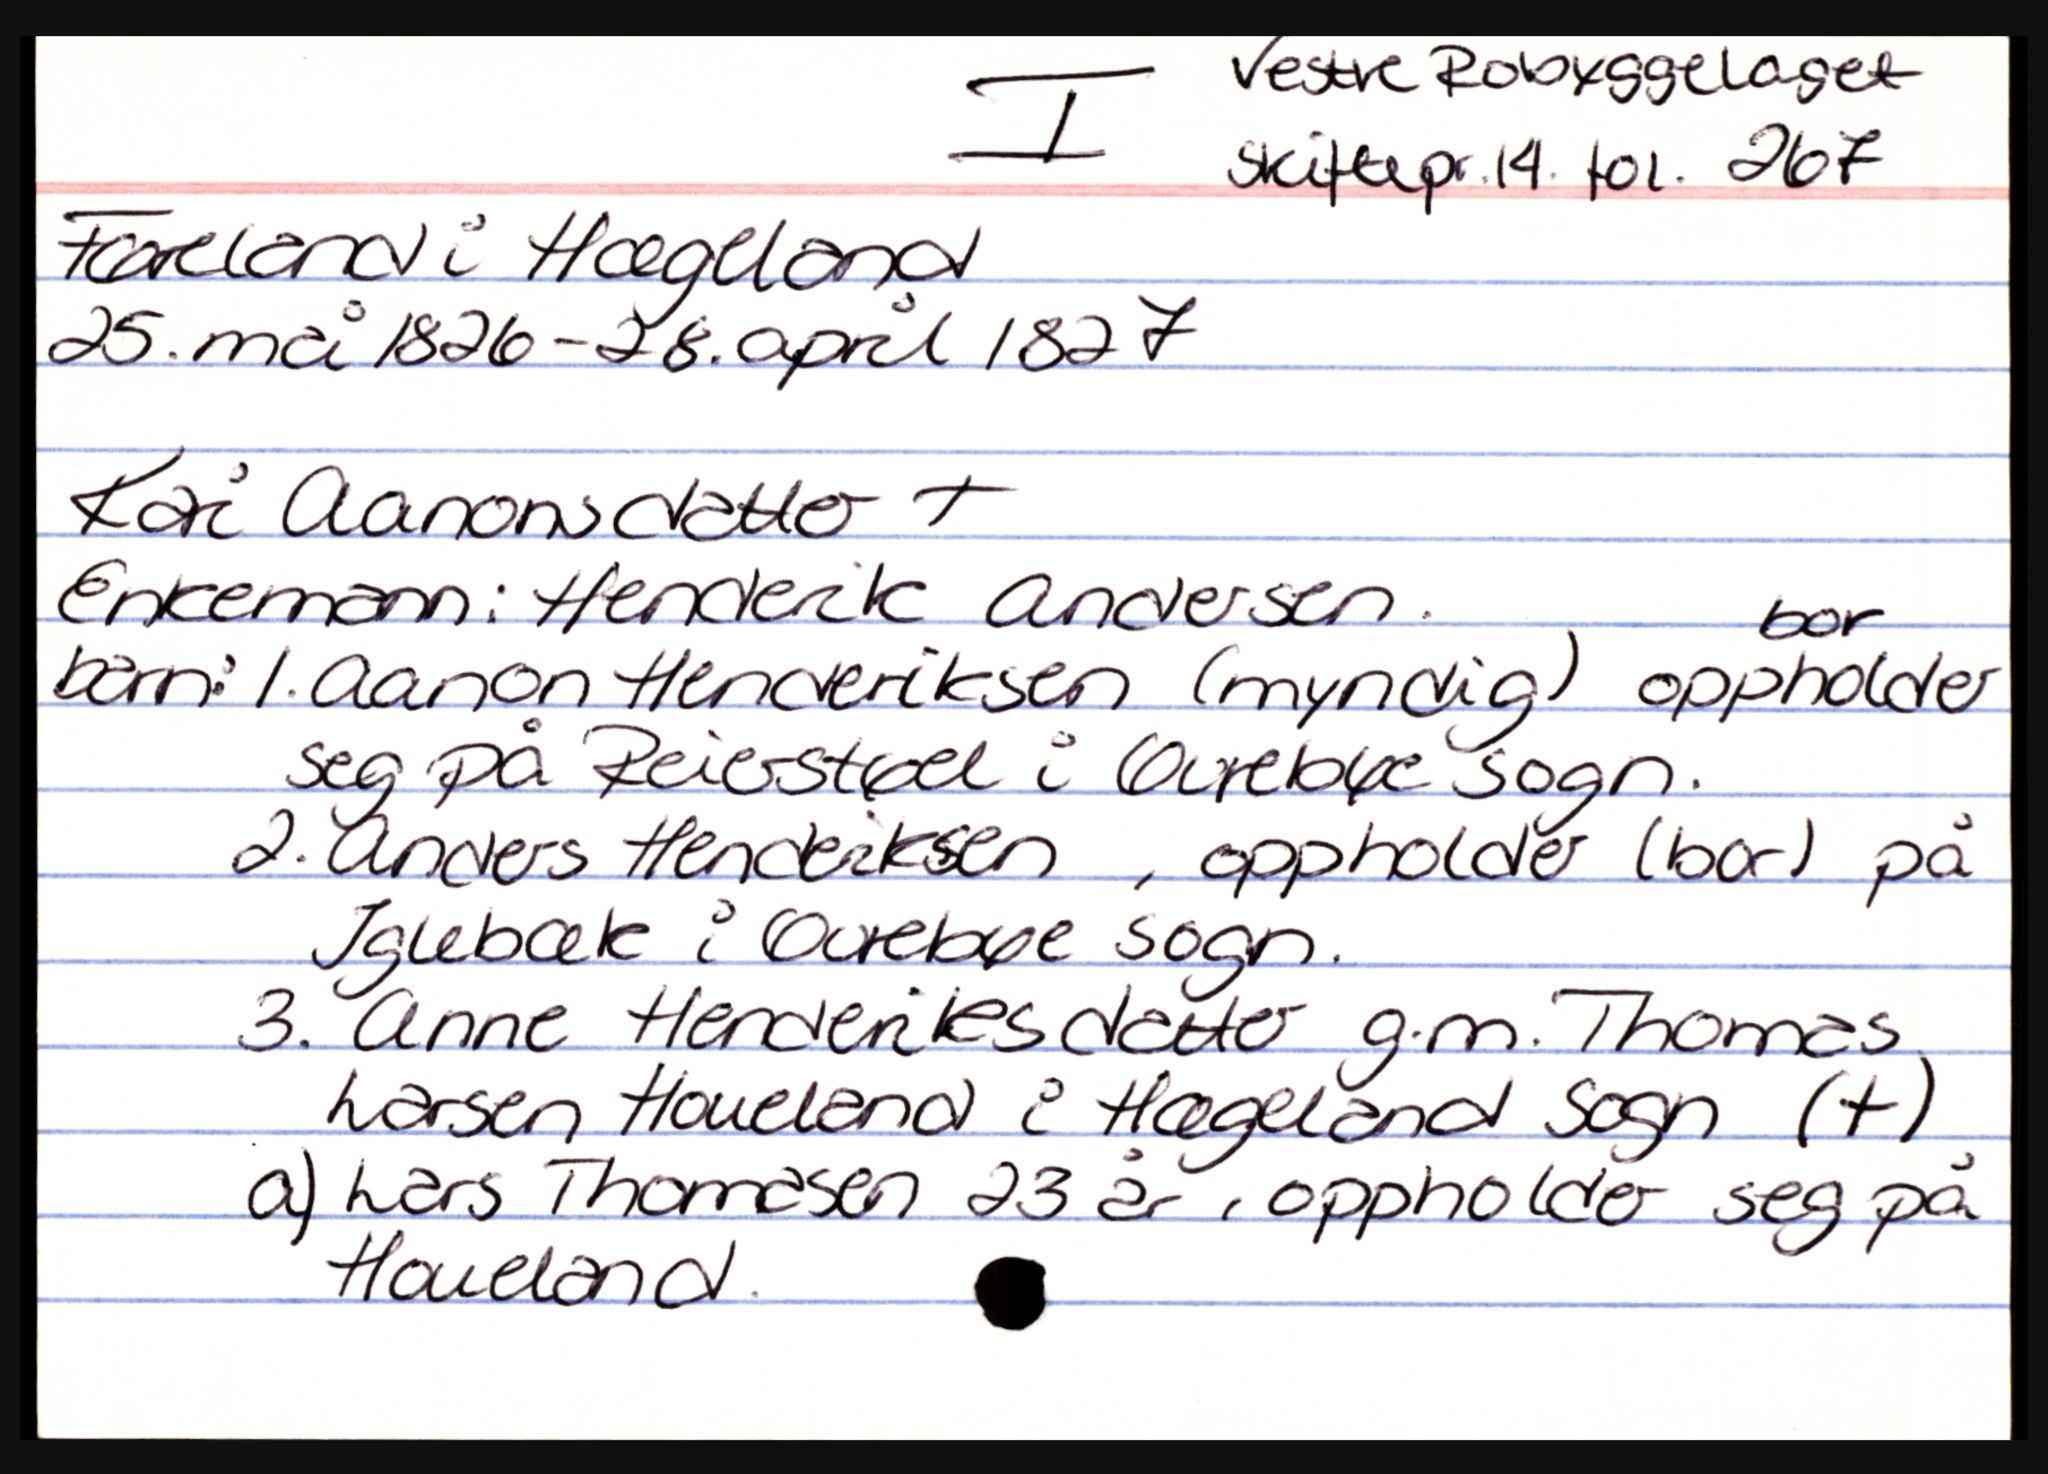 I
Vestre Robyggelaget
skiftepr. 14. fol. 267
Faareland i Hægeland
25. mai 1826 - 28. april 1827
Kari Aanonsdatter +
Enkemann: Henderik Andersen.
bor
barn: 1. Aanon Henderiksen (myndig) oppholder
seg på Reierstøel i Øvrebøe sogn.
2. Anders Henderiksen, oppholder (bor) på
Iglebæk i Øvrebøe sogn.
3. Anne Henderiksdatter g.m. Thomas
Larsen Houeland i Hægeland Sogn (+)
a) Lars Thomasen 23 år, oppholder seg på
Houeland.